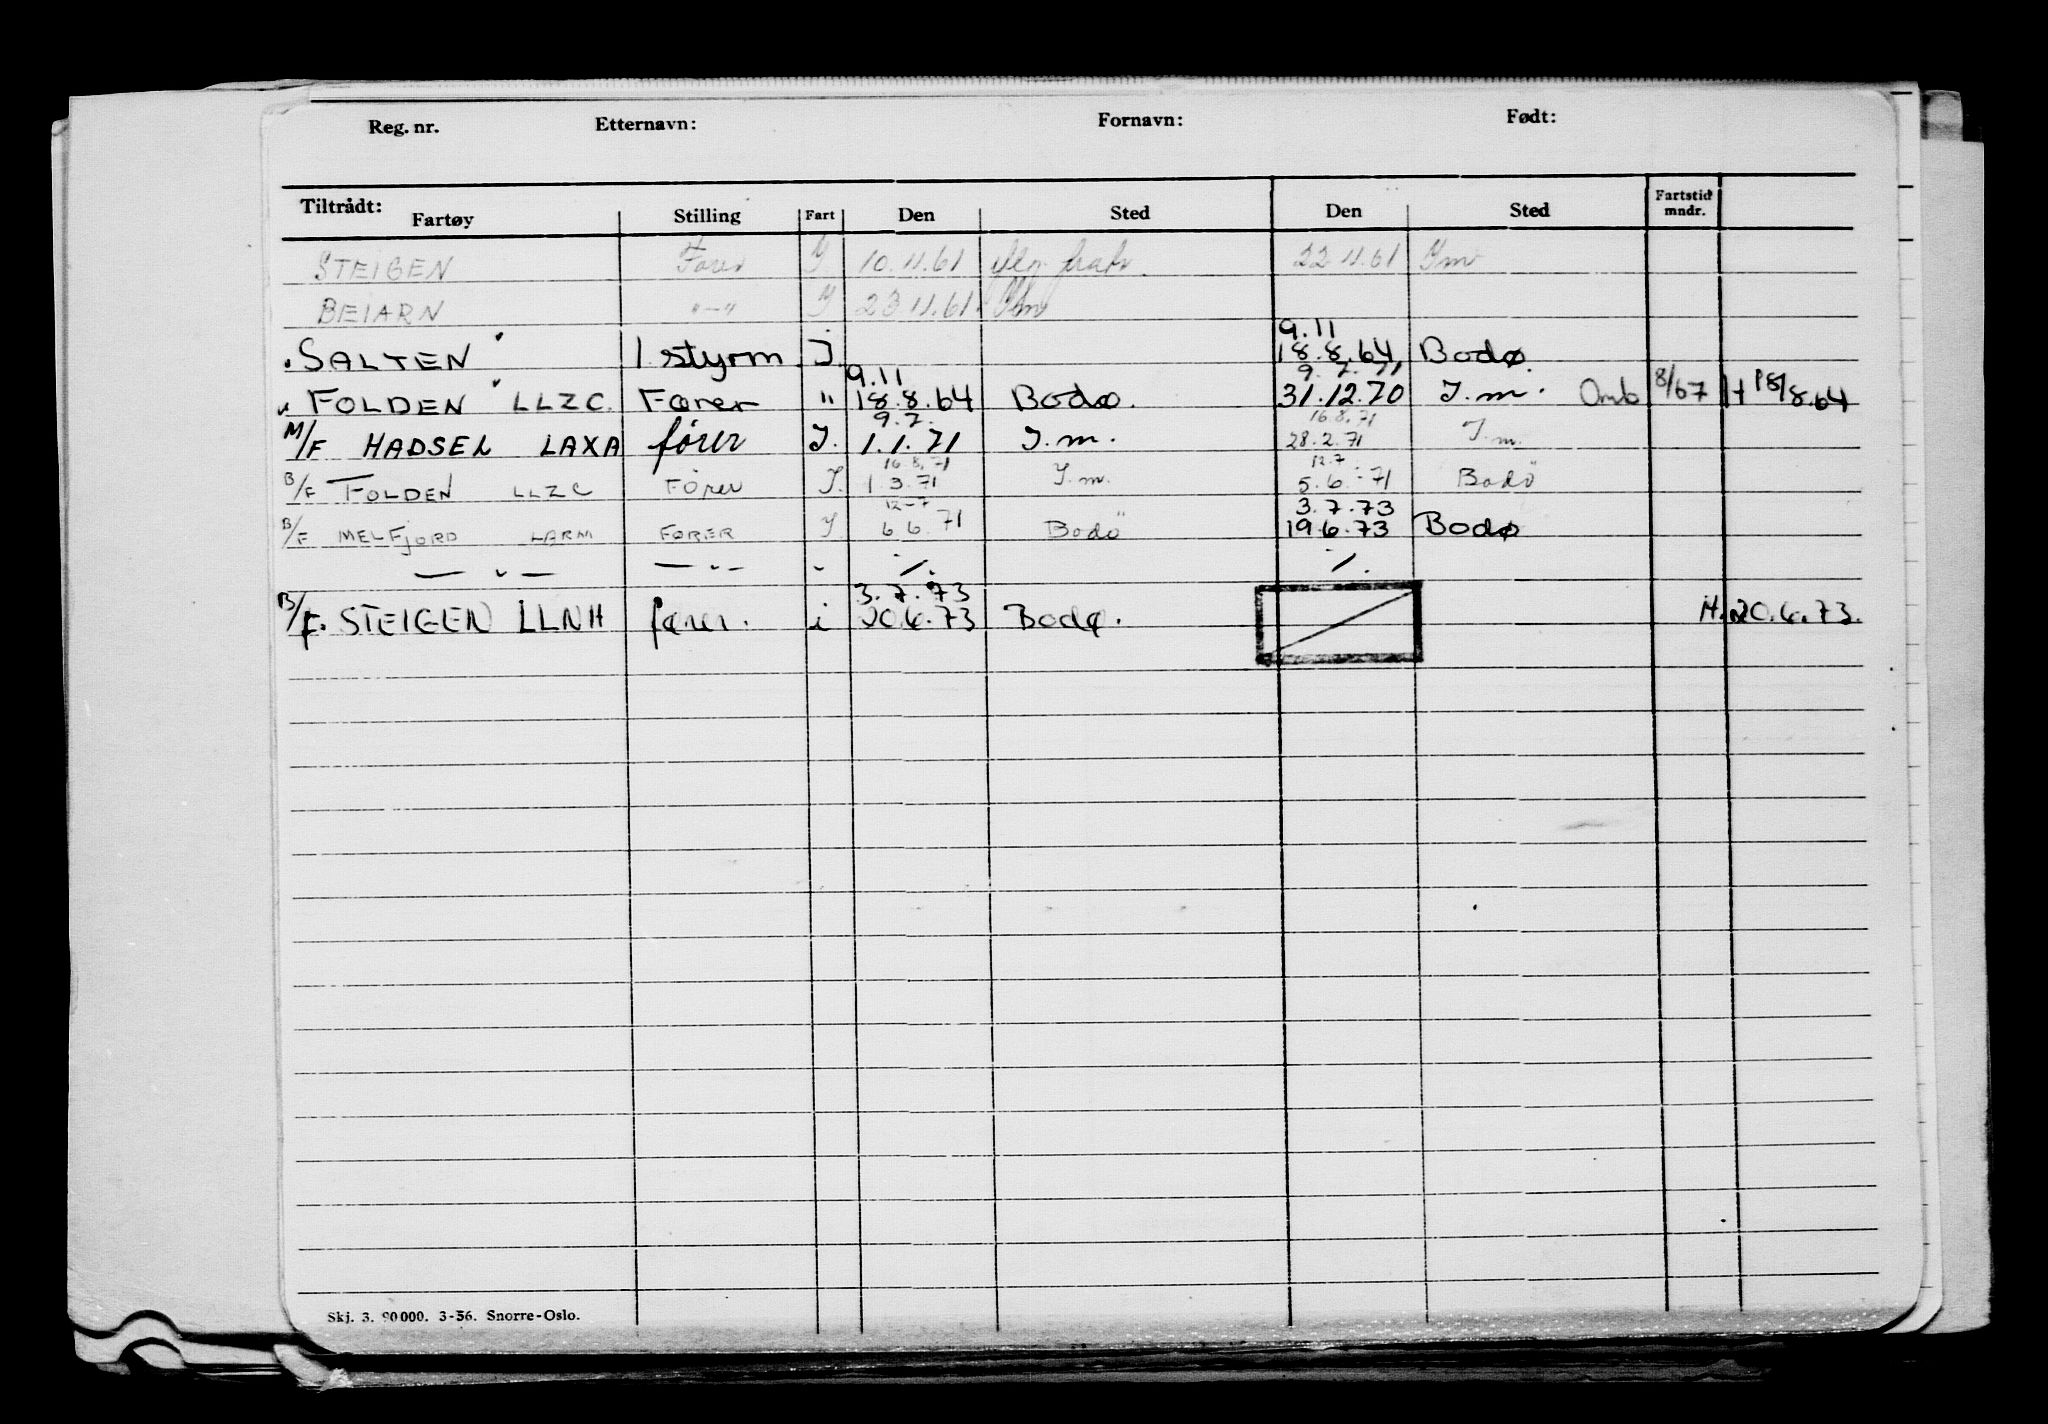 Reg. nr. Etternavn: Fornavn: Født:
Tiltrådt:
Fartøy Stilling Fart Den Sted Den Sted Fartstid mndr.
STEIGEN Fører I 10.11.61 22.11.61 Im
BEIARN "—" I 23.11.61.
9.11
SALTEN 1 styrm I. 18.8.64 Bodø.
9.11 9.7.71
FOLDEN LLZC. Fører " 18.8.64 Bodø. 31.12.70 I.m. Omb 8/67 H 18/8.64
9.7. 16.8.71
M/F HADSEL LAXA fører I. 1.1.71 I.m. 28.2.71 I.m.
16.8.71 12.7
B/F FOLDEN LLZC FÖRER I. 1 3.71 I.m. 5.6.-71 Bodö
12-7 3.7.73
B/F MELFJORD LARM FØRER I. 6 6.71 Bodö 19.6.73 Bodø
— " — — " — " ./. ./.
3.7.73
B/F. STEIGEN LLNH fører. i 20.6.73 Bodø. H. 20.6.73.
Skj. 3. 90 000. 3-56. Snorre-Oslo.